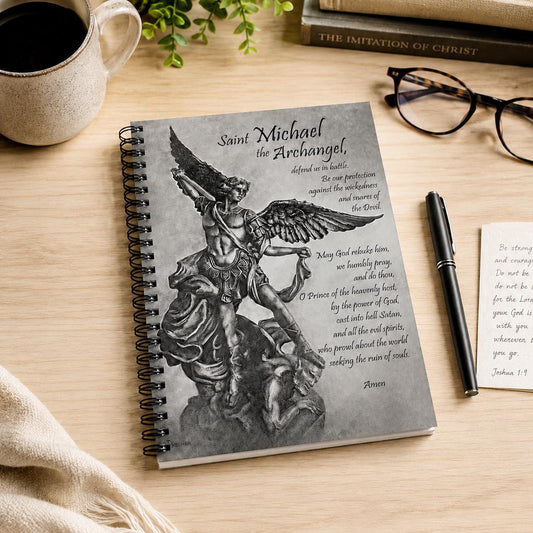 THE IMITATION OF CHRIST
Saint Michael
the Archangel,
defend us in battle.
Be our protection
against the wickedness
and snares of
the Devil.
May God rebuke him,
we humbly pray,
and do thou,
O Prince of the heavenly host,
by the power of God,
cast into hell Satan,
and all the evil spirits,
who prowl about the world
seeking the ruin of souls.
Amen
Be strong
and courag
Do not be
do not be
for the Lord
your God is
with you
wherever
you go.
Joshua 1:9